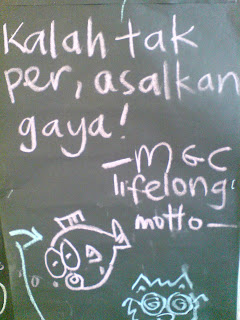 Kalah tak
per, asalkan
gaya!
— MGC
lifelong
motto —